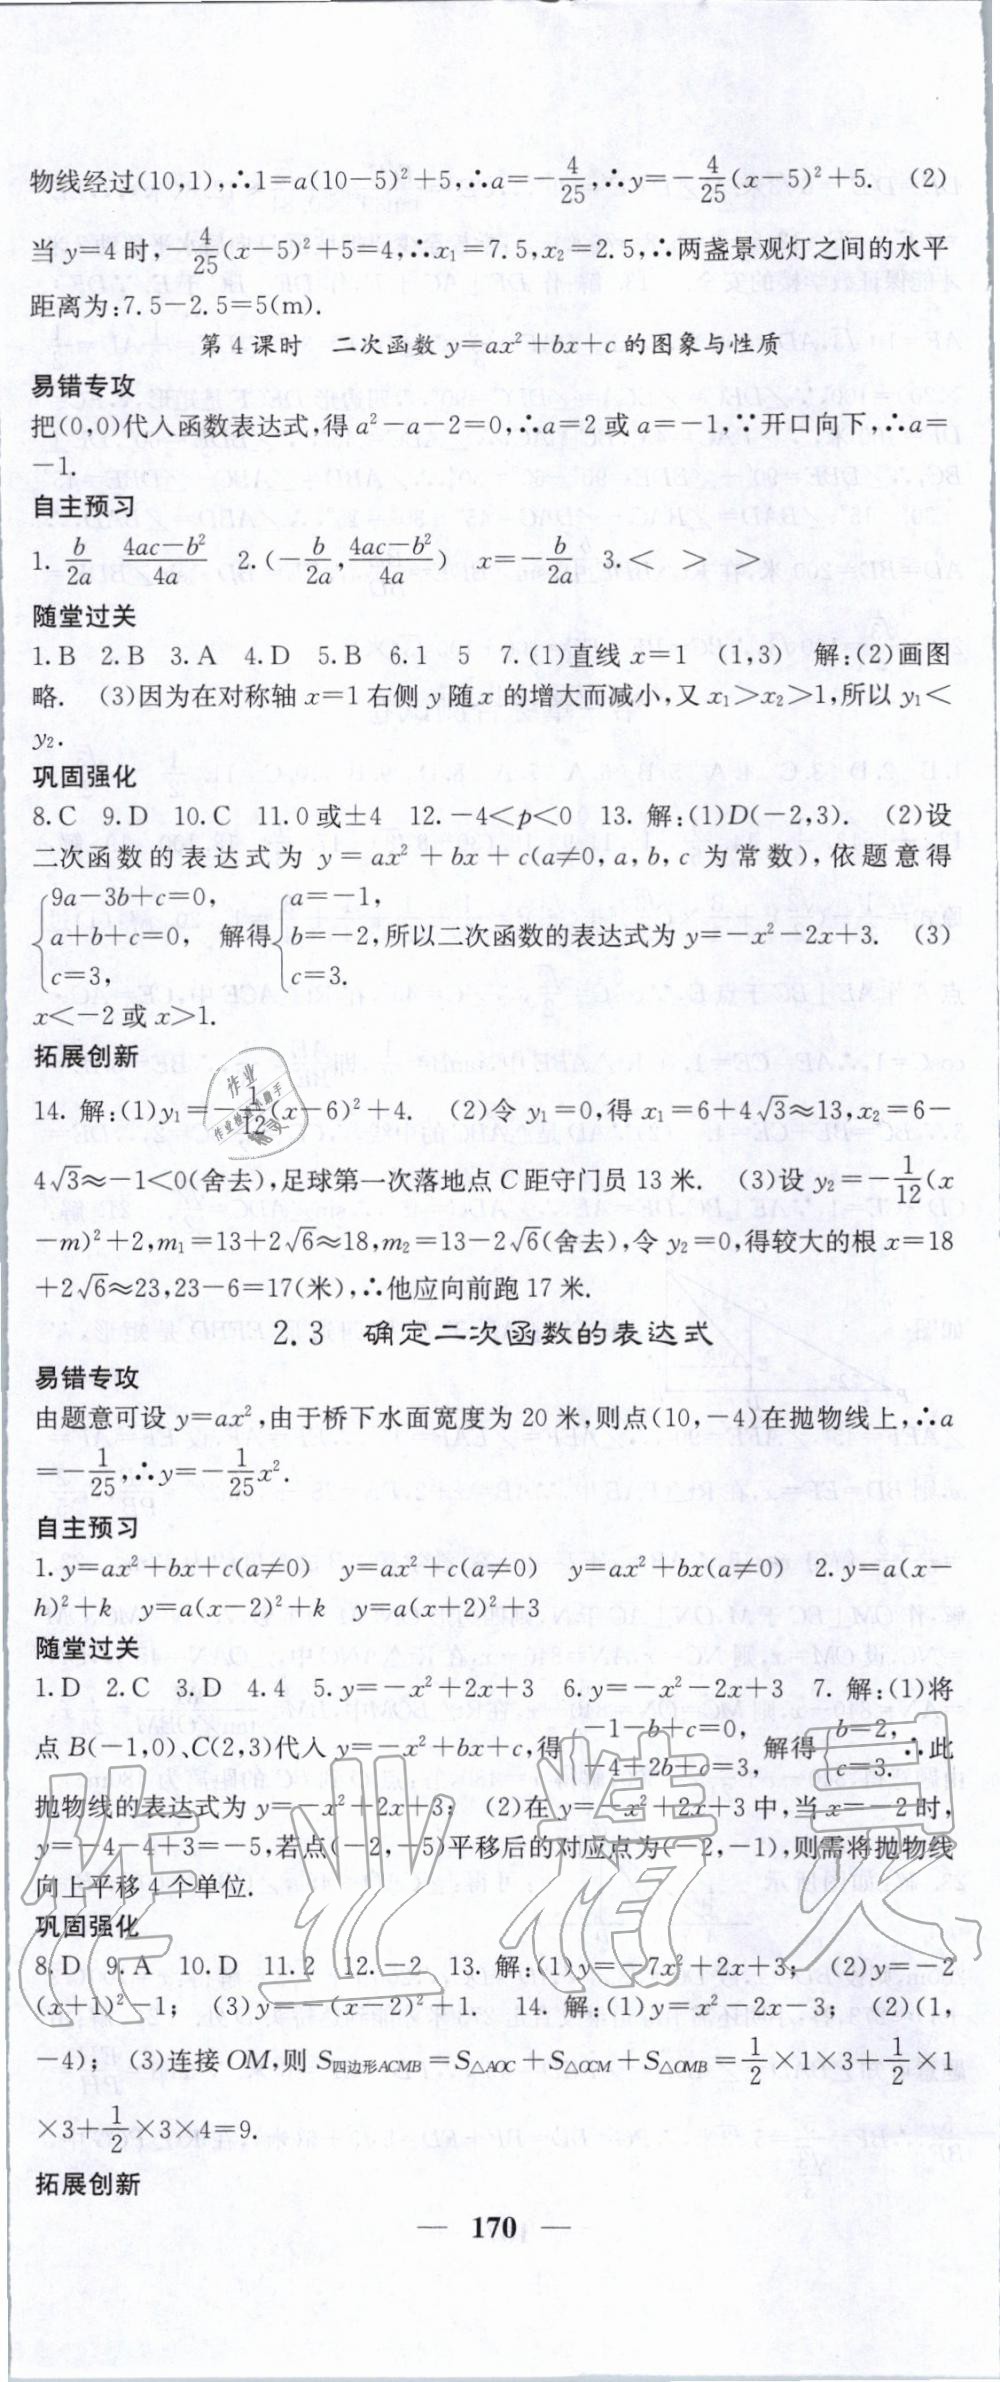 物线经过(10,1),∴1=a(10-5)²+5,∴a=-4/25,∴y=-4/25(x-5)²+5. (2)
当 y=4 时,-4/25(x-5)²+5=4,∴x₁=7.5,x₂=2.5,∴两盏景观灯之间的水平
距离为:7.5-2.5=5(m).
第 4 课时 二次函数 y=ax²+bx+c 的图象与性质
易错专攻
把(0,0)代入函数表达式,得 a²-a-2=0,∴a=2 或 a=-1,∵开口向下,∴a=
-1.
自主预习
1. b/2a (4ac-b²)/4a 2.(-b/2a,(4ac-b²)/4a) x=-b/2a 3.< > >
随堂过关
1.B 2.B 3.A 4.D 5.B 6.1 5 7.(1)直线 x=1 (1,3) 解:(2)画图
略. (3)因为在对称轴 x=1 右侧 y 随 x 的增大而减小,又 x₁>x₂>1,所以 y₁<
y₂.
巩固强化
8.C 9.D 10.C 11.0 或±4 12.-4<p<0 13. 解:(1)D(-2,3). (2)设
二次函数的表达式为 y=ax²+bx+c(a≠0,a,b,c 为常数),依题意得
{9a-3b+c=0, a+b+c=0, c=3, 解得{a=-1, b=-2, c=3. 所以二次函数的表达式为 y=-x²-2x+3. (3)
x<-2 或 x>1.
拓展创新
14. 解:(1)y₁=-1/12(x-6)²+4. (2)令 y₁=0,得 x₁=6+4√3≈13,x₂=6-
4√3≈-1<0(舍去),足球第一次落地点 C 距守门员 13 米. (3)设 y₂=-1/12(x
-m)²+2,m₁=13+2√6≈18,m₂=13-2√6(舍去),令 y₂=0,得较大的根 x=18
+2√6≈23,23-6=17(米),∴他应向前跑 17 米.
2.3 确定二次函数的表达式
易错专攻
由题意可设 y=ax²,由于桥下水面宽度为 20 米,则点(10,-4)在抛物线上,∴a
=-1/25,∴y=-1/25x².
自主预习
1.y=ax²+bx+c(a≠0) y=ax²+c(a≠0) y=ax²+bx(a≠0) 2.y=a(x-
h)²+k y=a(x-2)²+k y=a(x+2)²+3
随堂过关
1.D 2.C 3.D 4.4 5.y=-x²+2x+3 6.y=-x²-2x+3 7. 解:(1)将
点 B(-1,0)、C(2,3)代入 y=-x²+bx+c,得{-1-b+c=0, -4+2b+c=3, 解得{b=2, c=3. ∴此
抛物线的表达式为 y=-x²+2x+3; (2)在 y=-x²+2x+3 中,当 x=-2 时,
y=-4-4+3=-5,若点(-2,-5)平移后的对应点为(-2,-1),则需将抛物线
向上平移 4 个单位.
巩固强化
8.D 9.A 10.D 11.2 12.-2 13. 解:(1)y=-7x²+2x+3; (2)y=-2
(x+1)²-1; (3)y=-(x-2)²+1. 14. 解:(1)y=x²-2x-3; (2)(1,
-4); (3)连接 OM,则 S四边形ACMB=S△AOC+S△OCM+S△OMB=1/2×1×3+1/2×1
×3+1/2×3×4=9.
拓展创新
— 170 —
作业精灵